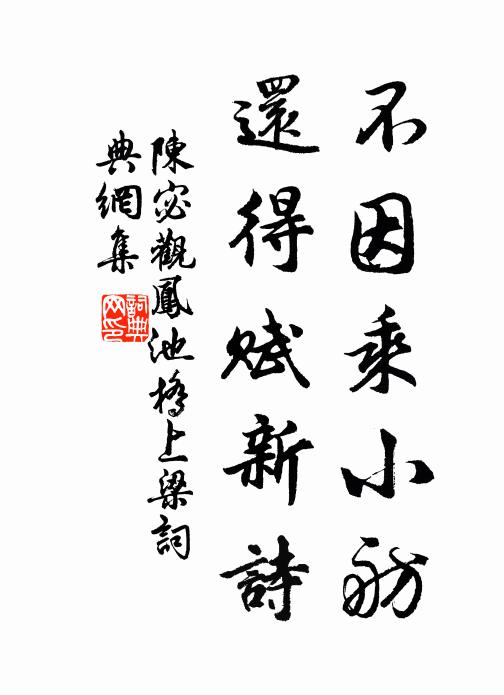 不因乘小舫
還得賦新詩
陳宓觀鳳池橋上梁詞
典網集
詞典
网印